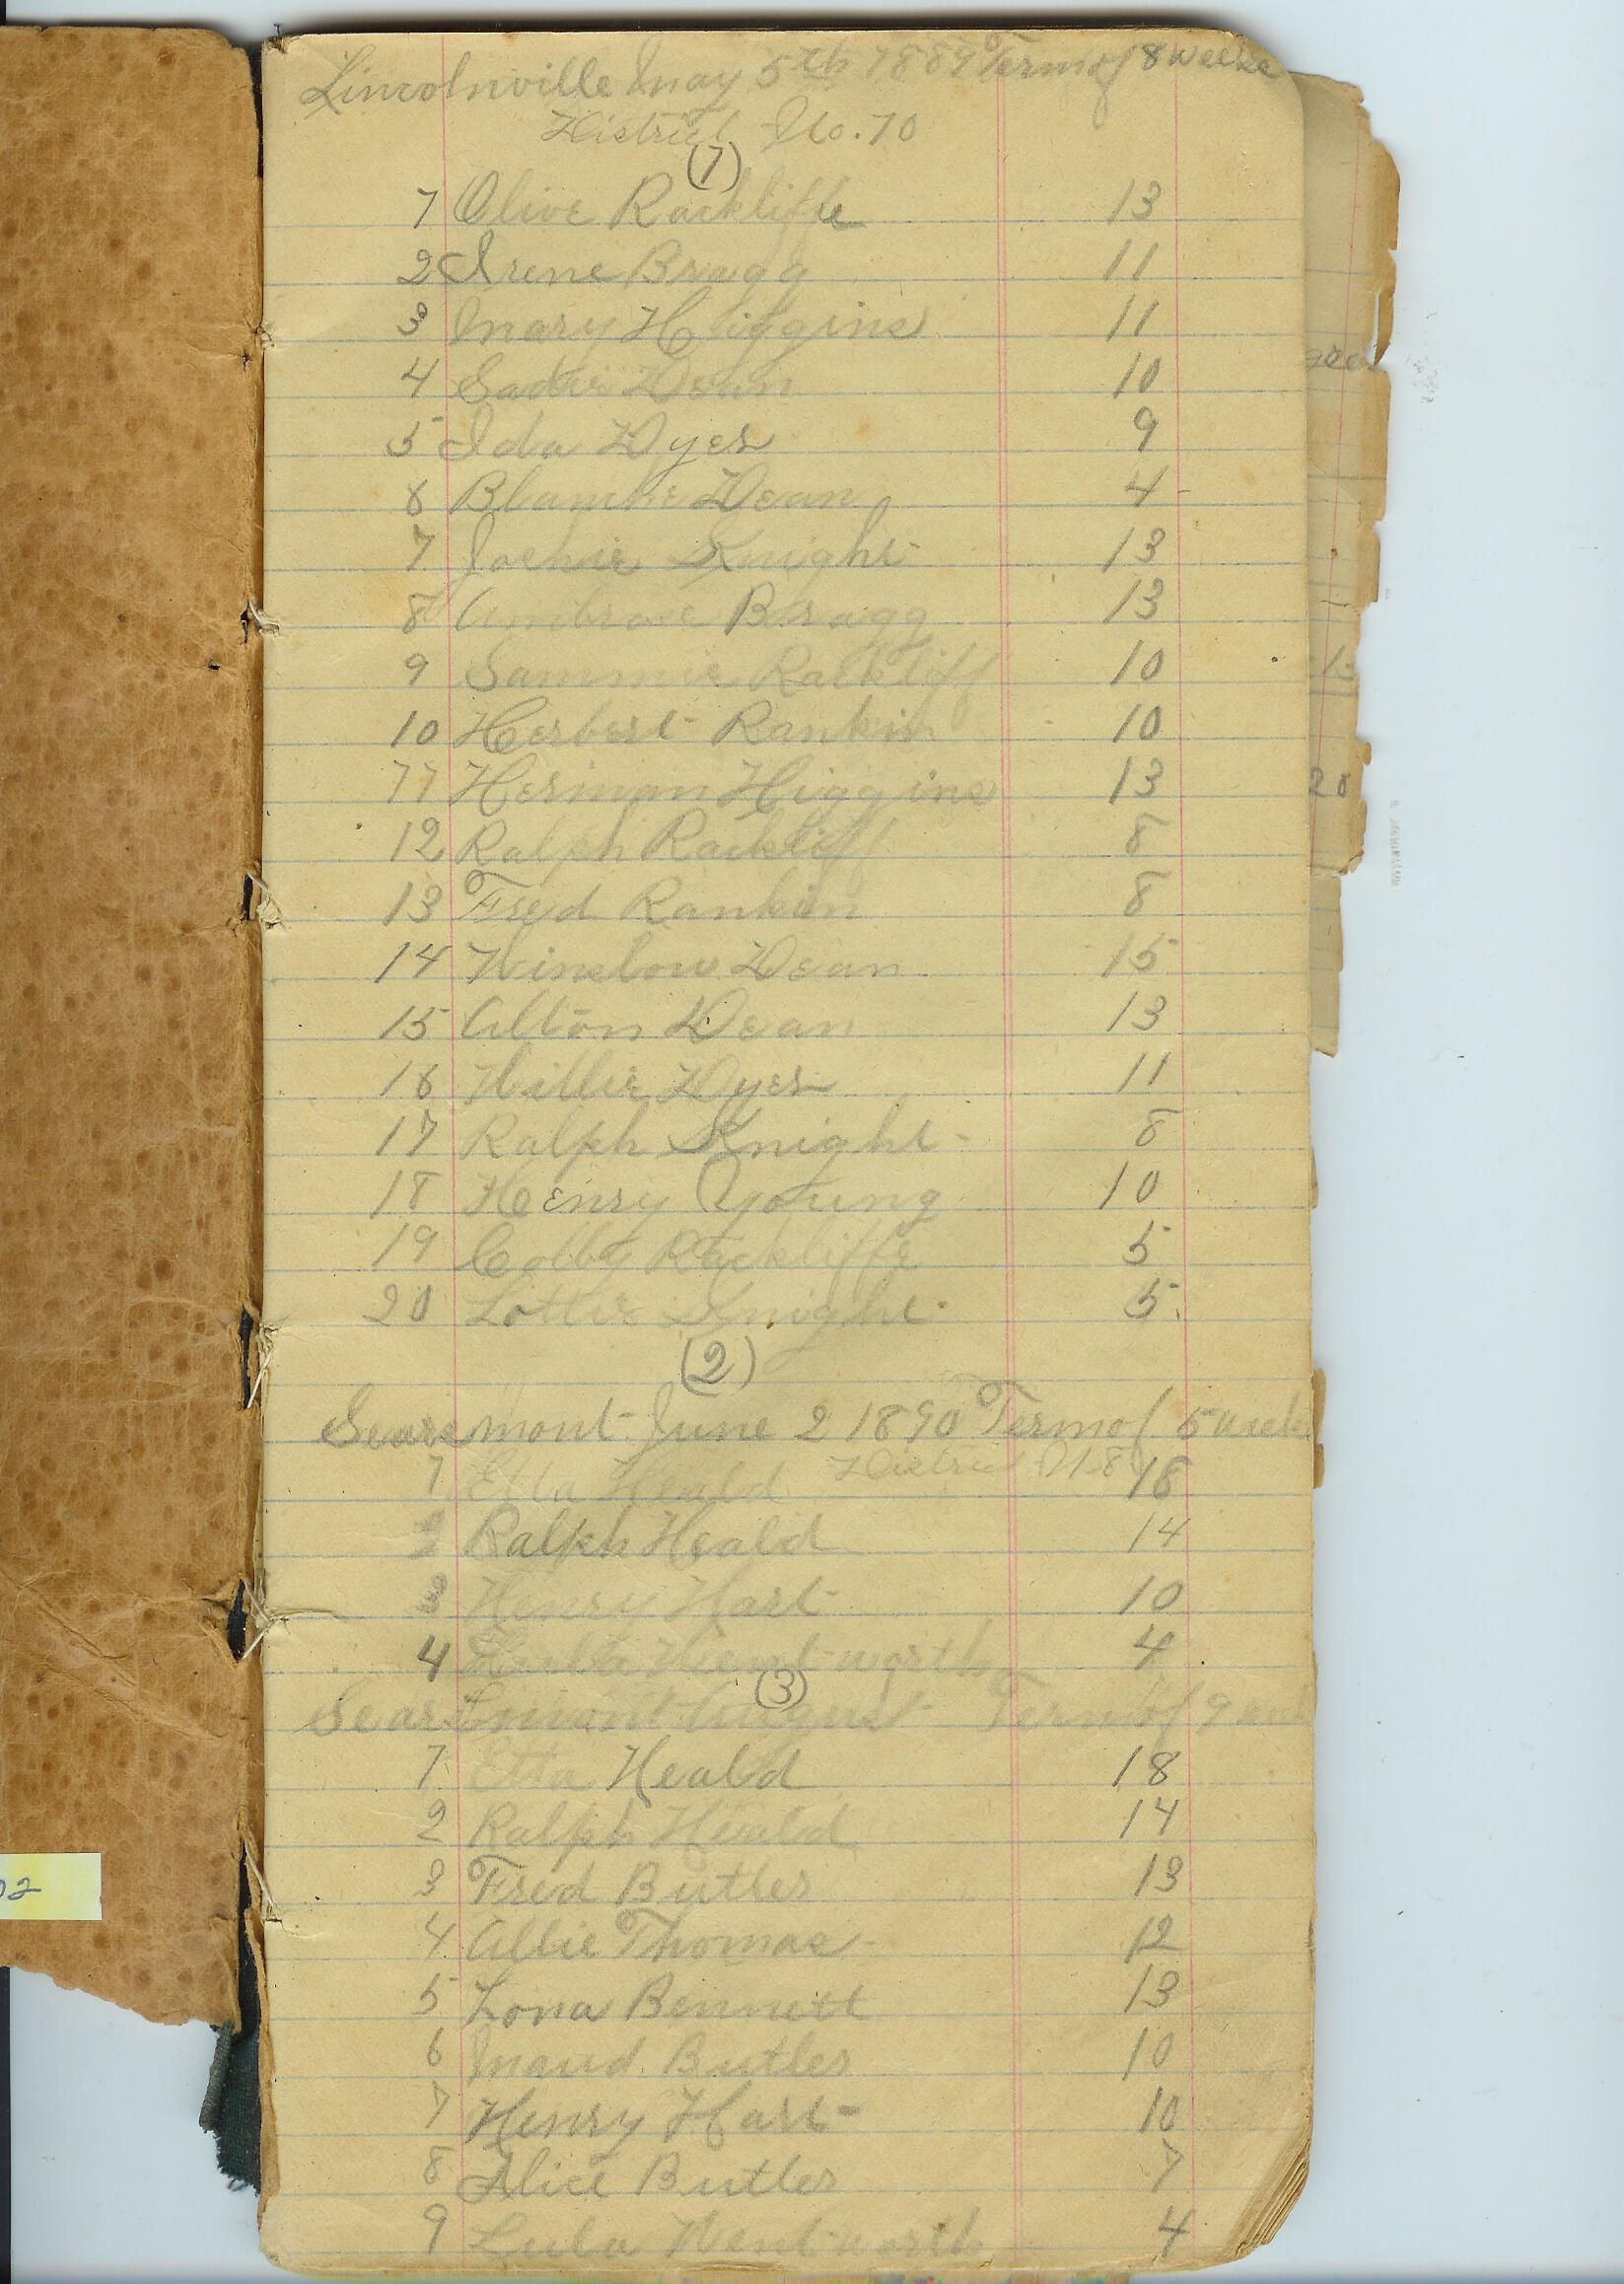 Lincolnville May 5th 1889 Term of 8 weeks
District No. 10
(1)
1 Olive Rackliffe 13
2 Irene Bragg 11
3 Mary Higgins 11
4 Sadie Dean 10
5 Ida Dyer 9
6 Blanche Dean 4
7 Joshie Knight 13
8 Ambrose Bragg 13
9 Sammie Rackliff 10
10 Herbert Rankin 10
11 Herman Higgins 13
12 Ralph Rackliff 8
13 Fred Rankin 8
14 Winslow Dean 15
15 Alton Dean 13
16 Willie Dyer 11
17 Ralph Knight 8
18 Henry Young 10
19 Colby Rackliffe 5
20 Lottie Knight 5
(2)
Searsmont June 2 1890 Term of 5 week
District No 8
1 Etta Heald 18
2 Ralph Heald 14
3 Henry Hart 10
4 Wentworth 4
(3)
Searsmont August Term of 9
1 Etta Heald 18
2 Ralph Heald 14
3 Fred Butler 13
4 Allie Thomas 12
5 Lona Bennett 13
6 Maud Butler 10
7 Henry Hart 10
8 Alice Butler 7
9 Lula Wentworth 4
20
02